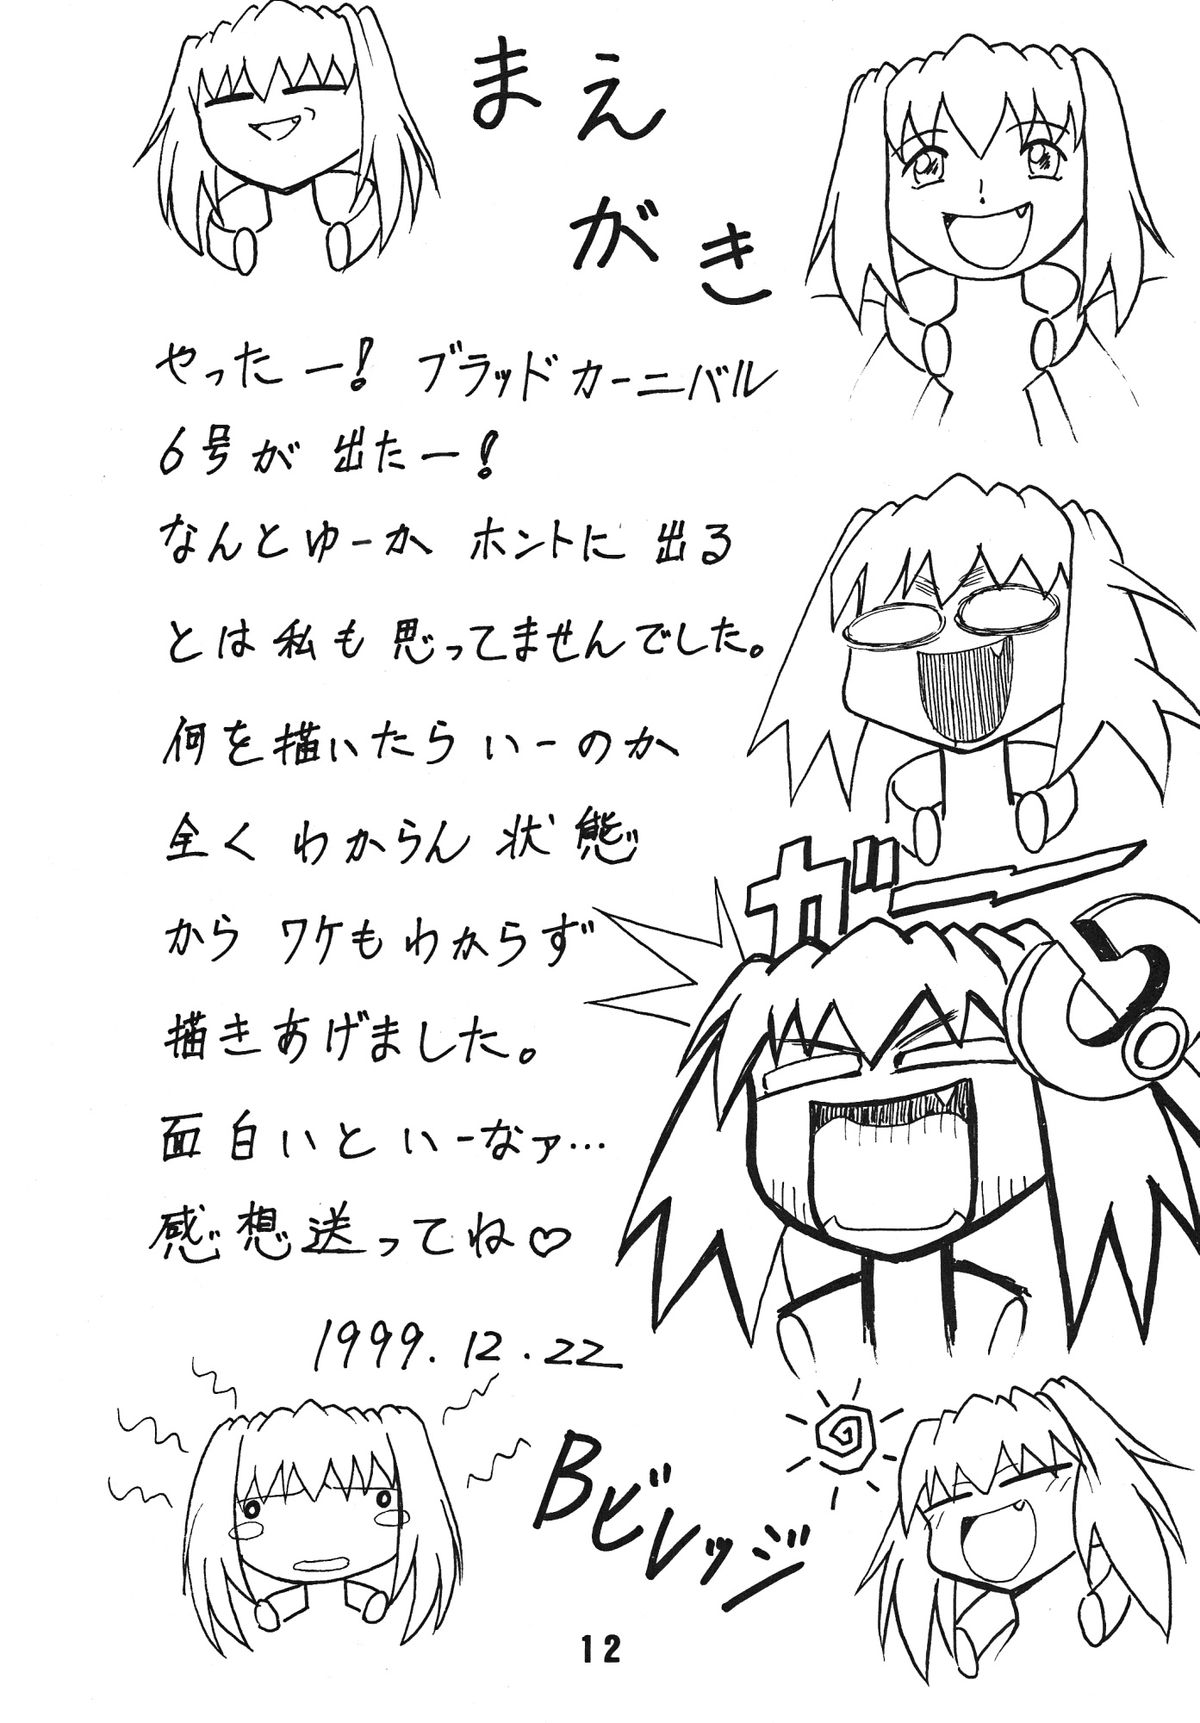 まえがき
やったー！ ブラッドカーニバル
6号が 出たー！
なんとゆーか ホントに 出る
とは 私も 思ってませんでした。
何を描いたら いーのか
全く わからん 状態
から ワケもわからず
描きあげました。
面白いと いーなァ…
感想送ってね♡
1999.12.22
ガー
Bビレッジ
12